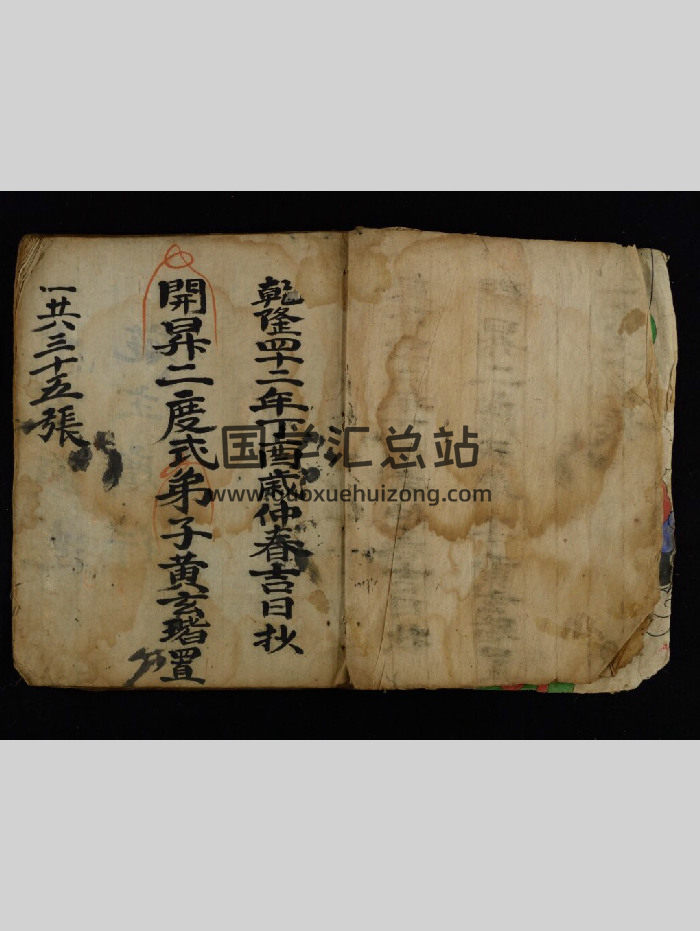 乾隆四十二年丁酉歲仲春吉日抄
開昇二度式弟子黃玄瑎置
一共六三十五張
国学汇总站
www.guoxuehuizong.com